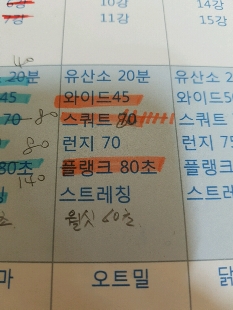 6강 10강 14강
7강 11강 15강
40
20분 유산소 20분 유산소
45 와이드45 와이드5
70-80 스쿼트 80 스쿼트
80 런지 70 런지
80초 플랭크 80초 플랭크
140
스트레칭 스트레
초 월싯 60초
마 오트밀 닭